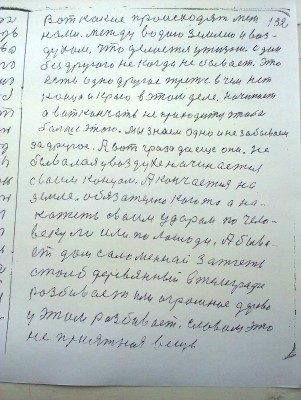 132
Вот какие происходят мен
нами. между водою землею и воз-
духом. что движется и жизнь. один
без другого не когда не бывает. Это
есть одно другое трете в чем нет
конца и краю в этом деле. начинает
а вот кончать не приходиту чтобы
была с этого. мы знаем одно и не забываем
за другое. А вот гроза да еще она. не
бывалая у воздухе начинается
своим концом. А кончается на
земле. обязательно кого то а на-
кажеть своим ударом по чело-
веку ли или по лошади. А быва-
ет дом саломеннай зажгеть
столб деревянный в телигради
розбивает или огромное дерево
у этом разбивает. словам это
не приятная вещь